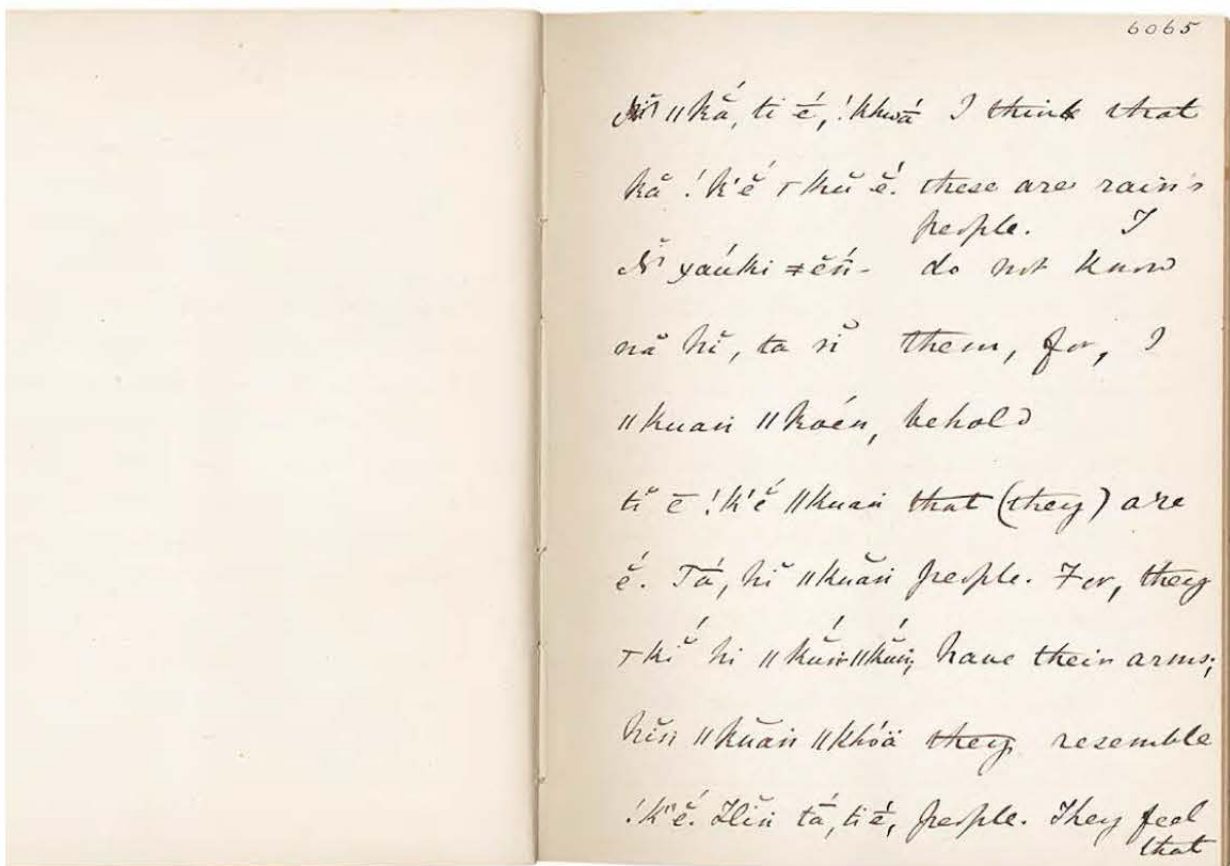 6065
Ṅ̆ ǁká̆, ti ĕ́, !khwā́ I think that
kă !k'ĕ́ ⊤kŭ ĕ́. these are rain's
people. I
Ṅ̆ χaúki ≠ĕ́ṅ- do not know
nă hĭ, ta ṅ̆ them, for, I
ǁkuaṅ ǁkoéṅ, behold
tĭ ē !k'ĕ́ ǁkuaṅ that (they) are
ĕ́. Tá, hĭ ǁkuăṅ people. For, they
⊤kĭ́ hi ǁkŭ́ṅǁkŭ́ṅ, have their arms;
hĭṅ ǁkŭaṅ ǁkhóä they resemble
!k'ĕ́. Hĭṅ tá, ti ĕ́, people. They feel
that